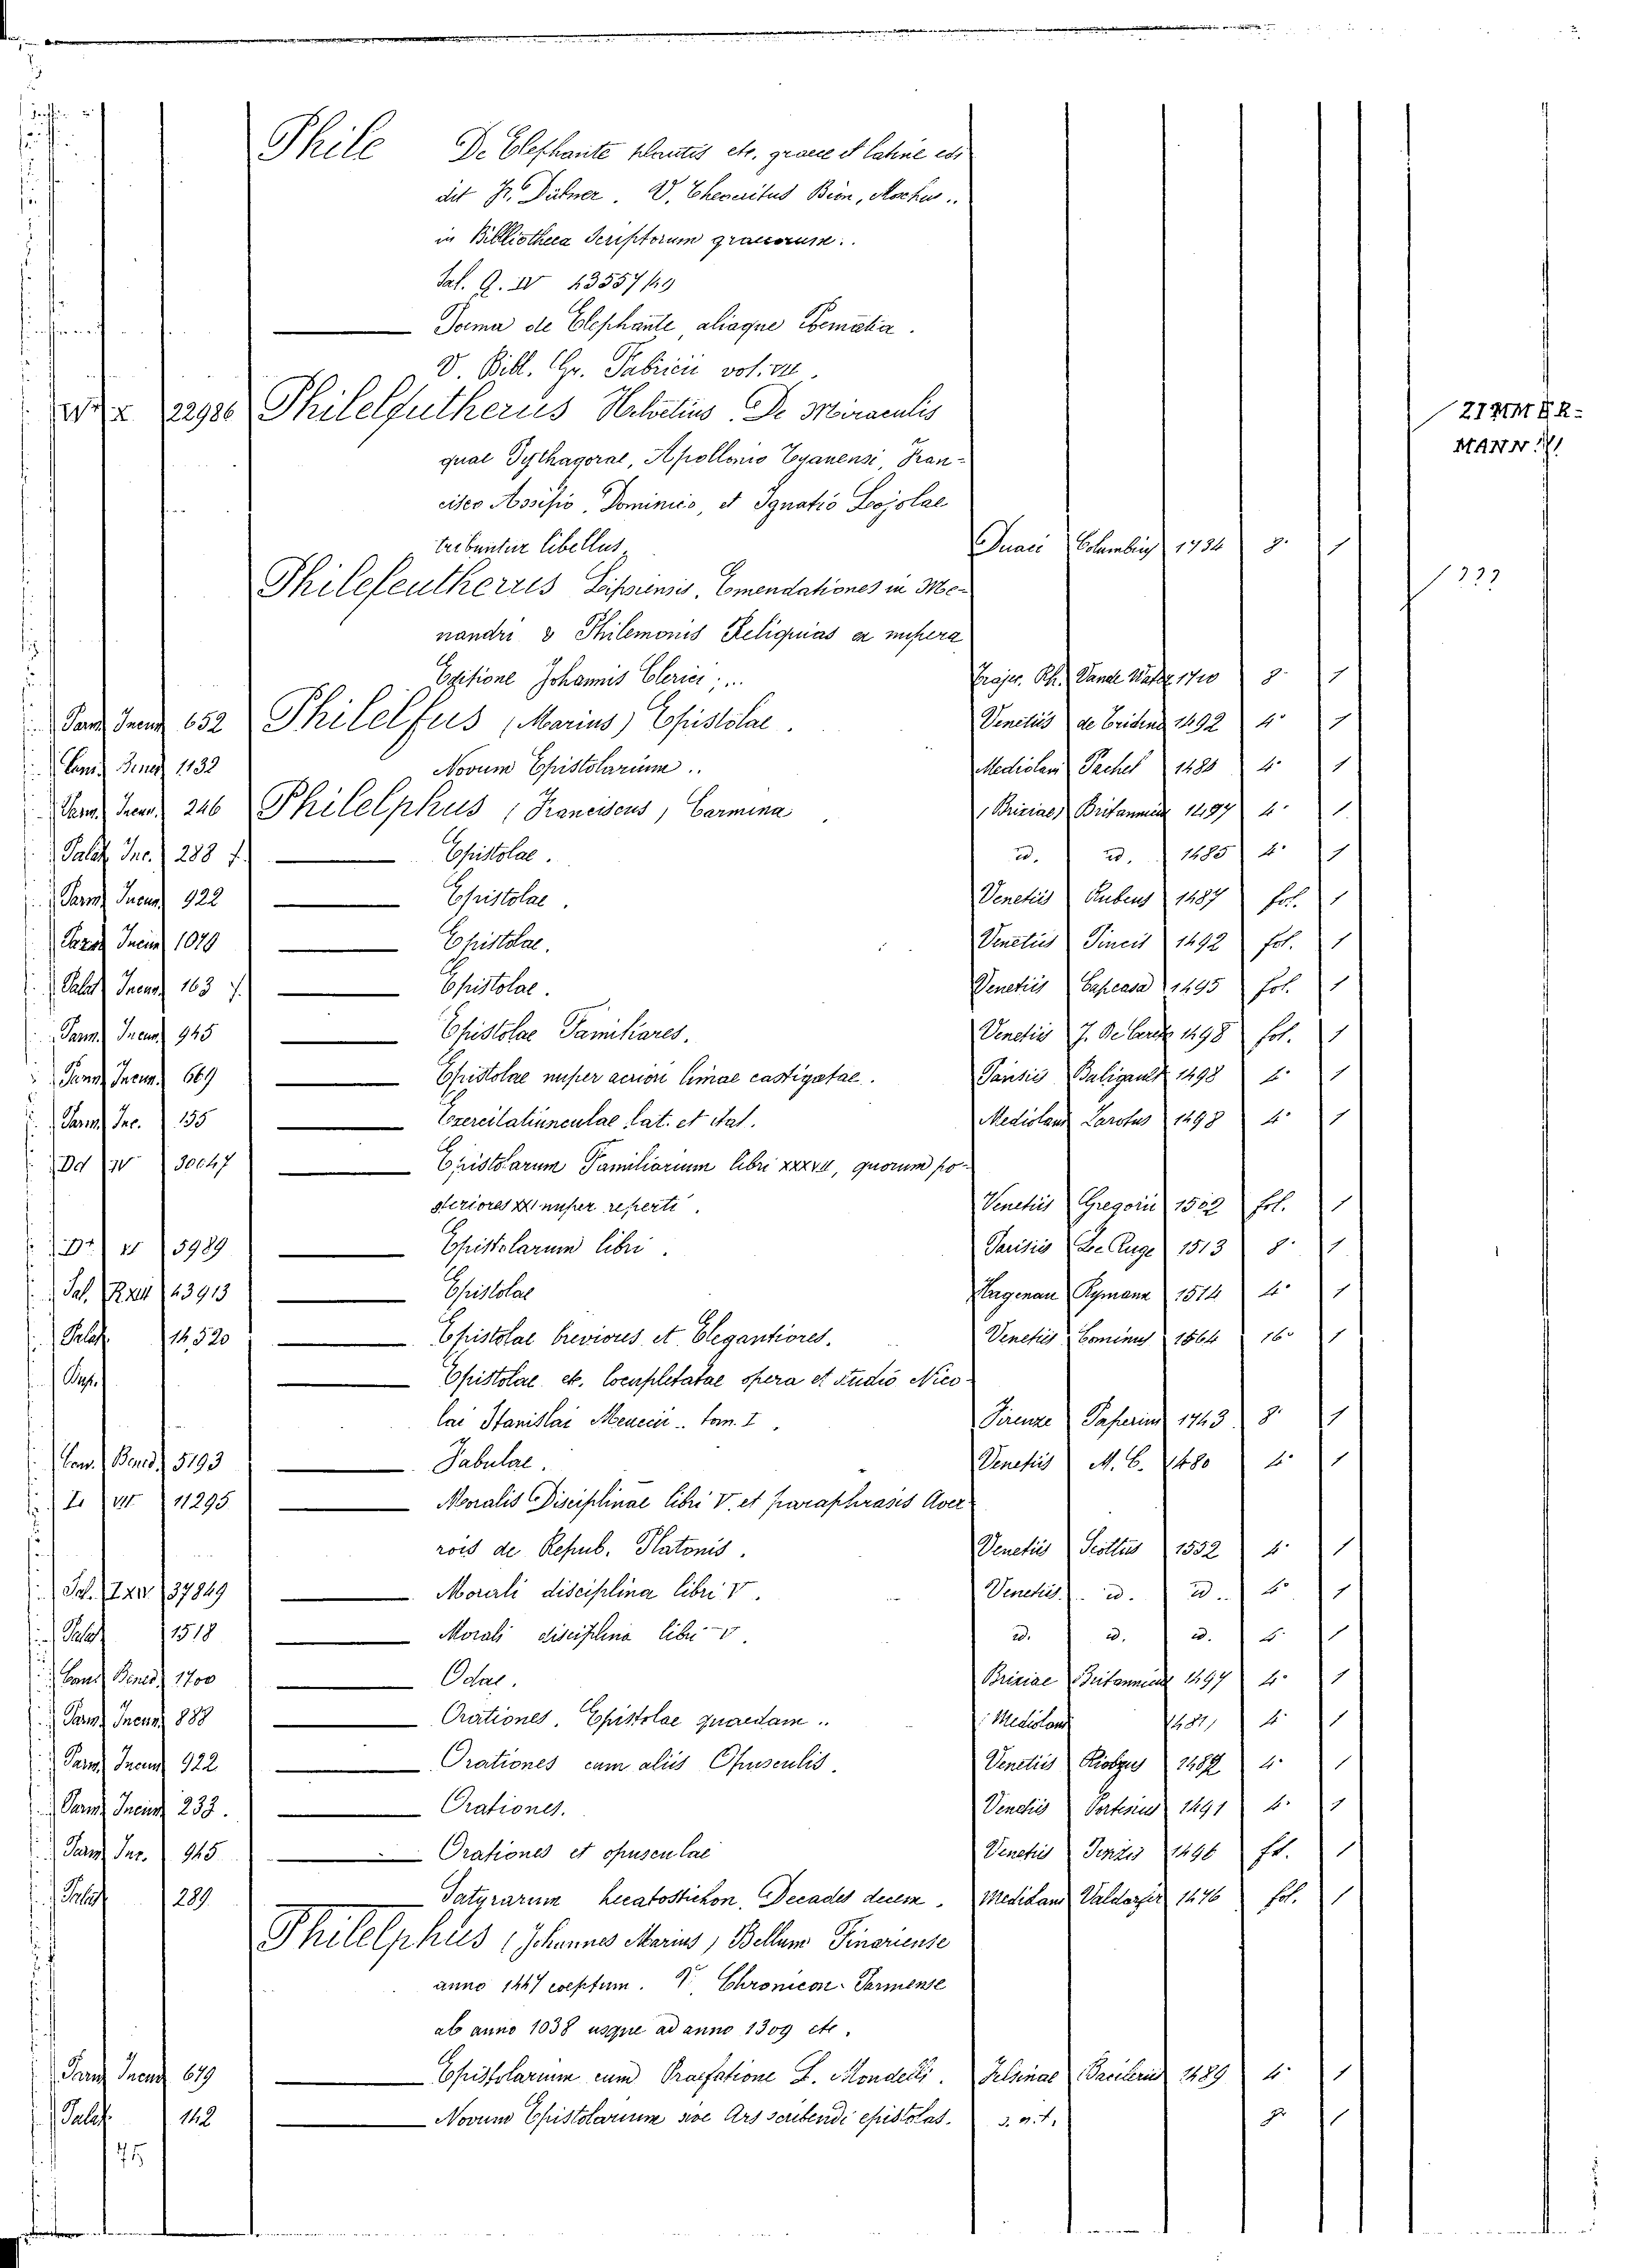 Phile De Elephante plantis etc. graece et latine edi
dit Fr. Dübner. V. Theocritus Bion, Moschus..
in Bibliotheca Scriptorum graecorum..
Sal. Q. IV 23557/19
Poema de Elephante, aliaque Poematia.
V. Bibl. Gr. Fabricii vol. VII.
22986 Phileleutherus Helvetius. De Miraculis
quae Pythagorae, Apollonio Tyanensi, Fran-
cisco Assisio, Dominico, et Ignatio Lojolae
tribuntur libellus. Duaci Columbius 1734 8. 1
Phileleutherus Lipsiensis. Emendationes in Me-
nandri & Philemonis Reliquias ex nupera
Editione Johannis Clerici;... Trajec. Rh. Vande Water 1710 8. 1
Parm Incun 652 Philelfus (Marius) Epistolae. Venetiis de Tridino 1492 4° 1
1132 Novum Epistolarium.. Mediolani Pachel 4° 1
Parm Incun. 246 Philelphus (Franciscus) Carmina (Brixiae) Britannicus 1497 4° 1
Palat Inc. 288 f. Epistolae. id. id. 1485 4° 1
Parm Incun 922 Epistolae. Venetiis Rubens 1487 fol. 1
Parm Incun 1079 Epistolae. Venetiis Pincis 1492 fol. 1
Palat Incun 163 f. Epistolae. Venetiis Capcasa 1495 fol. 1
Parm Incun 945 Epistolae Familiares. Venetiis J. De Cereto 1498 fol. 1
Parm Incun. 669 Epistolae nuper acriori limae castigatae. Parisiis Baligault 1498 4. 1
Parm Inc. 155 Exercitatiunculae lat. et ital. Mediolani Zarotus 1498 4° 1
Dd IV 30047 Epistolarum Familiarium libri XXXVII, quorum po-
steriores XI nuper reperti. Venetiis Gregorii 1502 fol. 1
5989 Epistolarum libri. Parisiis De Auge 1513 8. 1
Sal. 23913 Epistolae Hagenau Rymann 1514 4° 1
Palat 14,520 Epistolae breviores et Elegantiores. Venetiis Cominus 1564 16° 1
Epistolae etc. locupletatae opera et studio Nico-
lai Stanislai Meucci.. tom. I. Firenze Paperini 1743 8. 1
Com. Bened. 5193 Fabulae. Venetiis M. C. 1480 4. 1
11295 Moralis Disciplinae libri V. et paraphrasis Aver-
rois de Repub. Platonis. Venetiis Scottus 1552 4. 1
37849 Morali disciplina libri V. Venetiis. id. id. 4° 1
Palat 1518 Morali disciplina libri V. id. id. id. 4. 1
Bened 1700 Odae. Brixiae Britannicus 1497 4. 1
Parm Incun 888 Orationes. Epistolae quaedam.. Mediolani 1481, 4. 1
Parm Incun 922 Orationes cum aliis Opusculis. Venetiis 4. 1
Parm Incun 233. Orationes. Venetiis Portesius 1491 4. 1
Parm Inc. 945 Orationes et opusculae Venetiis Pinzis 1496 fol. 1
Palat 289 Satyrarum hecatostichon. Decades decem. Mediolani Valdarfer 1476 fol. 1
Philelphus (Johannes Marius) Bellum Finariense
anno 1447 coeptum. V. Chronicon Parmense
ab anno 1038 usque ad anno 1309 etc.
Parm Incun 679 Epistolarium cum Praefatione L. Mondelli. Felsinae Bacilerius 1489 4. 1
Palat 142 Novum Epistolarium sive Ars scribendi epistolas. s. n. t. 1
75
ZIMMER-
MANN